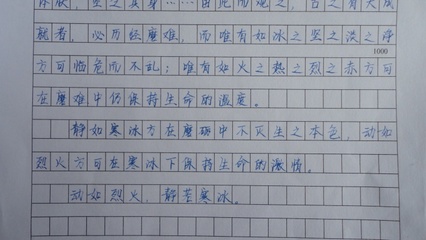 身……由此而观之，古之有大成
就者，必历经磨难，而唯有如冰之坚之洪之净
1000
方可临危而不乱；唯有如火之热之烈之赤方可
在磨难中仍保持生命的温度。
静如寒冰方在磨砺中不灭生之本色，动如
烈火方可在寒冰下保持生命的激情。
动如烈火，静若寒冰。